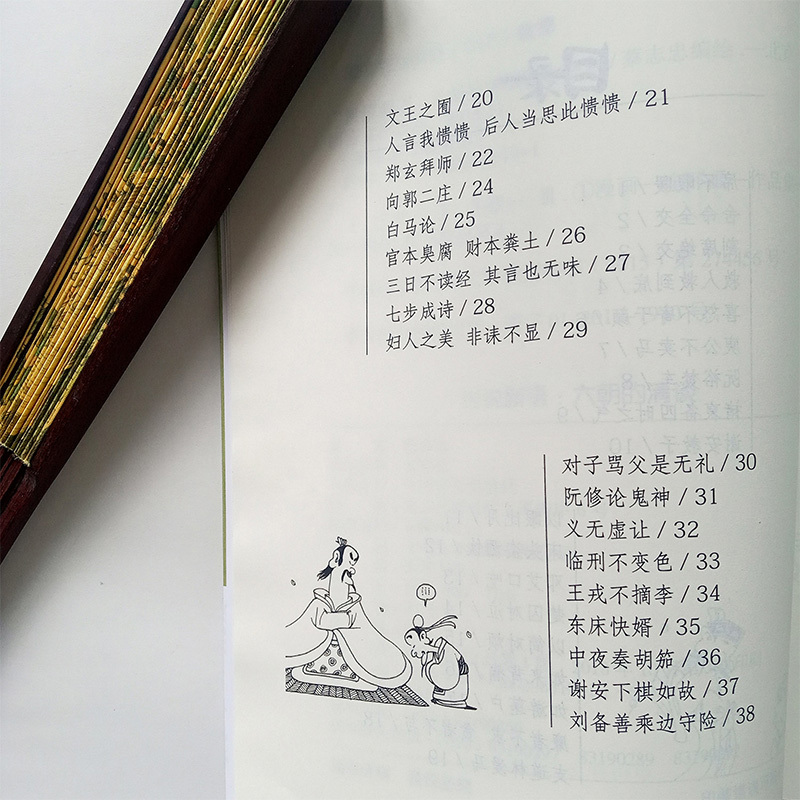 文王之囿/20
人言我愦愦 后人当思此愦愦/21
郑玄拜师/22
向郭二庄/24
白马论/25
官本臭腐 财本粪土/26
三日不读经 其言也无味/27
七步成诗/28
妇人之美 非诔不显/29
对子骂父是无礼/30
阮修论鬼神/31
义无虚让/32
临刑不变色/33
王戎不摘李/34
东床快婿/35
中夜奏胡笳/36
谢安下棋如故/37
刘备善乘边守险/38